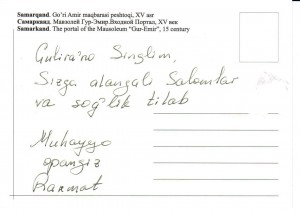 Samarqand. Go'ri Amir maqbarasi peshtoqi, XV asr
Самарканд. Мавзолей Гур-Эмир.Входной Портал, XV век
Samarkand. The portal of the Mausoleum "Gur-Emir", 15 century
Gulira'no Singlim,
Sizga alangali Salomlar
va sog'lik tilab
Muhayyo
opangiz
Raxmat